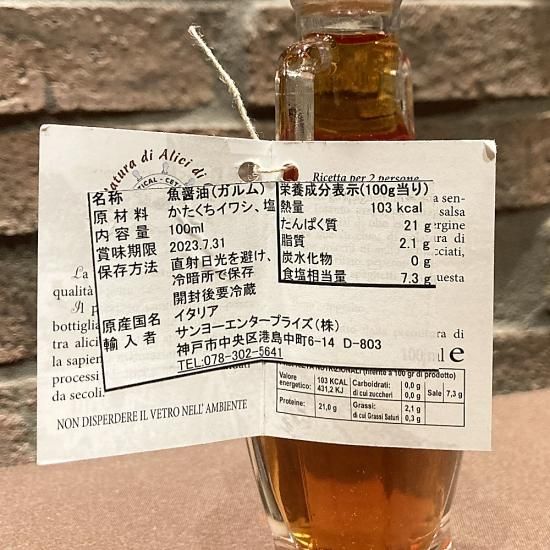 atura di Alici di
TICAL - CET
名称 魚醤油(ガルム)
原材料 かたくちイワシ、塩
内容量 100ml
賞味期限 2023.7.31
保存方法 直射日光を避け、
冷暗所で保存
開封後要冷蔵
原産国名 イタリア
輸入者 サンヨーエンタープライズ(株)
神戸市中央区港島中町6-14 D-803
TEL:078-302-5641
La
qualità
Il p
bottiglia
tra alici
la sapien
processi
da secoli.
NON DISPERDERE IL VETRO NELL' AMBIENTE
Ricetta per 2 persone
栄養成分表示(100g当り)
熱量 103 kcal
たんぱく質 21 g
脂質 2.1 g
炭水化物 0 g
食塩相当量 7.3 g
a sen-
salsa
ergine
ra di
cciati,
uesta
ra di
100 ml e
NUTRIZIONALI (riferito a 100 gr di prodotto)
Valore energetico: 103 KCAL 431,2 KJ
Carboidrati: 0,0 g
di cui zuccheri 0,0 g
Sale 7,3 g
Proteine: 21,0 g
Grassi: 2,1 g
di cui Grassi Saturi 0,3 g